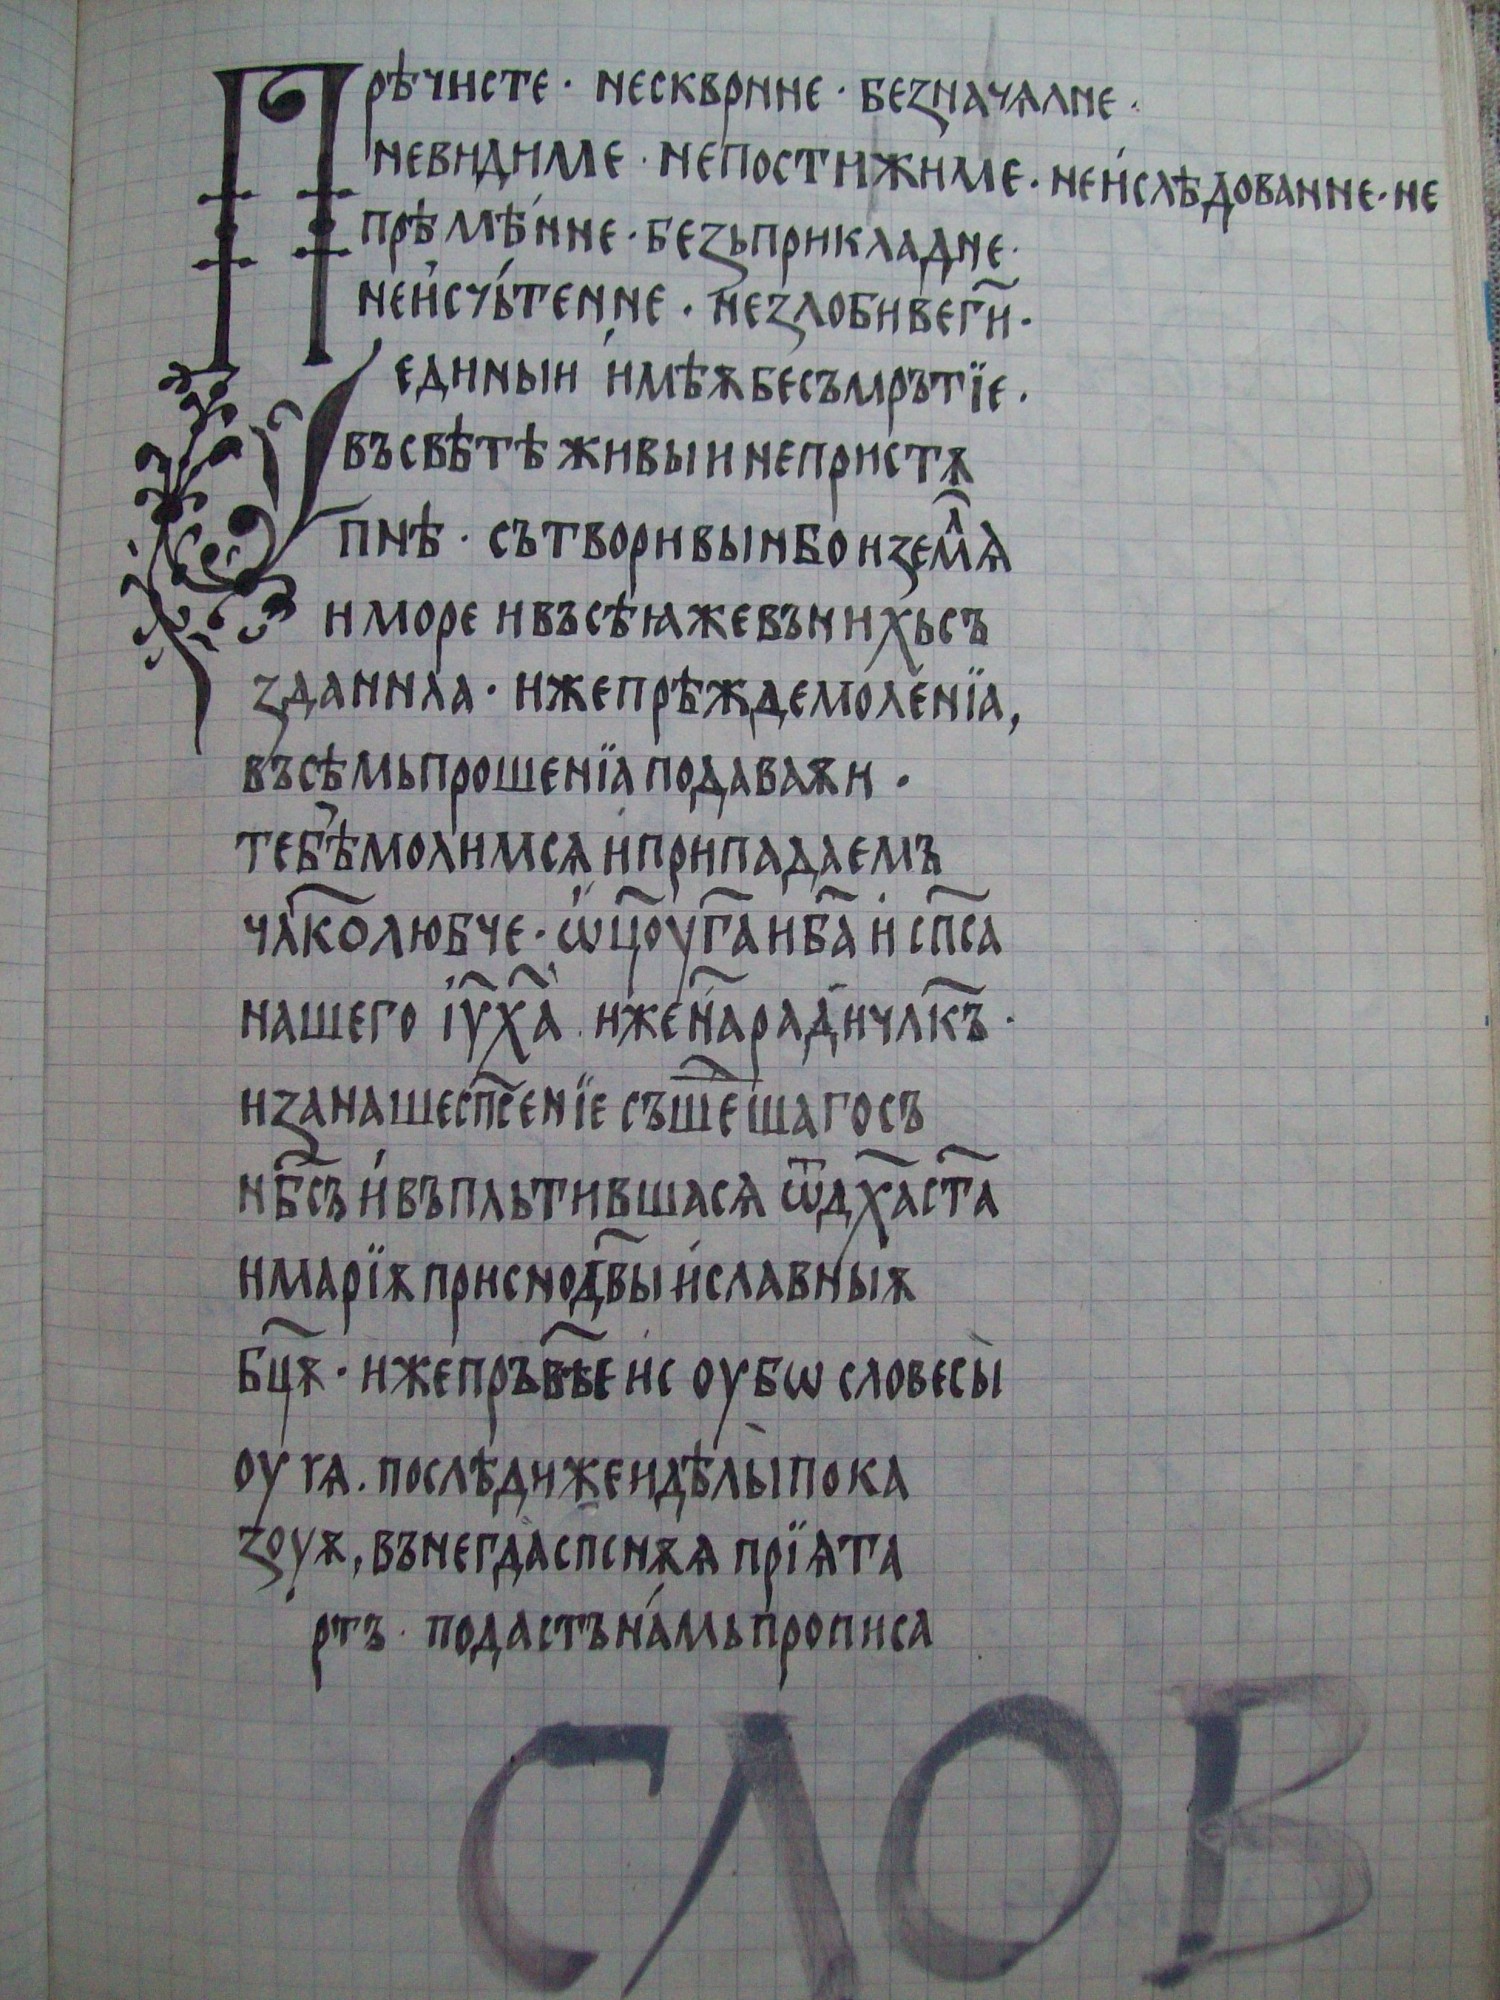 Прѣчисте · нескврнне · беꙁначѧлне ·
невидиме · непостижиме · неи́слѣдованне · не
прѣмѣ́нне · беꙁьприкладне ·
неи҆счьтенне · неꙁлобиве ги҃ ·
единыи и҆мѣѫ бесъмрътїе ·
въ свѣтѣ живыи непристѫ
пнѣ · сътворивы нбо и ꙁемⷧ҇ѧ
и море и въсѣ ꙗже въ нихь съ
ꙁданнла · иже прѣжде моленїа,
въсѣмь прошенїа подаваѫи ·
тебѣ молимсѧ и҆ припадаемъ
члк҃олюбче · ѡ҆ц҃оу г҃а и б҃а и҆ сп҃са
нашего і҆у҃ х҃а · иже н҃а ради члк҃ъ ·
и ꙁа наше сп҃сенїе съше҃шаго съ
нб҃съ и҆ въпльтившасѧ ѿ дх҃а ст҃а
и марїѫ присно дв҃ы и҆ славныѫ
бц҃ѫ · иже пръвѣ҃е ис оубѡ словесы
оучѧ . послѣди же и дѣлы пока
ꙁоуѫ, вънегда спснѫѧ прїѧта
рть · подастъ намь прописа
СЛОВ